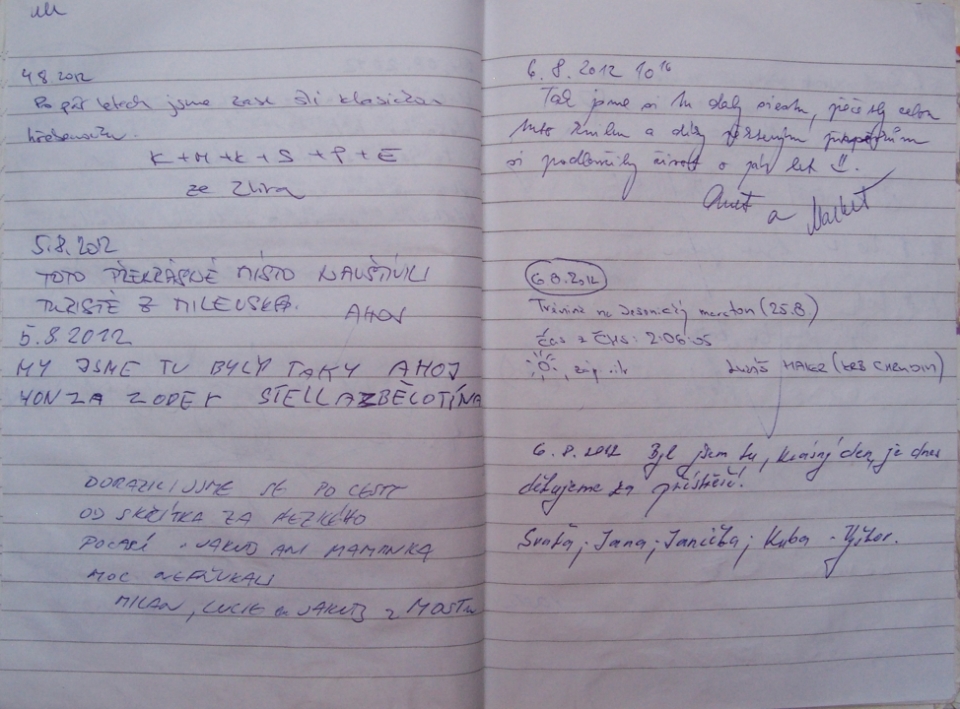 4.8.2012
Po pět letech jsme zase šli klasickou
hřebenovku.
K+M+K+S+P+E
ze Zlína
5.8.2012
TOTO PŘEKRÁSNÉ MÍSTO NAVŠTÍVILI
TURISTÉ Z MILEVSKA.
AHOJ
5.8.2012
MY JSME TU BYLY TAKY AHOJ
HONZA Z ODER STELLA Z BĚLOTÍNA
DORAZILI JSME SE PO CESTĚ
OD SKŘÍTKA ZA HEZKÉHO
POČASÍ. JAKUB ANI MAMINKA
MOC NEFŇUKALI
MILAN, LUCIE a JAKUB z MOSTU
6.8.2012 10¹⁶
Tak jsme si tu daly siestu, celou
tuto knihu a díky
si podloužily život o pár let
a
6.8.2012
Trénink na Jesenický maraton (25.8)
čas z ČHS: 2:06:05
6.8.2012 Byl jsem tu, krásný den, je dnes
děkujeme za přístřeší!
Jana, Janička, Kuba